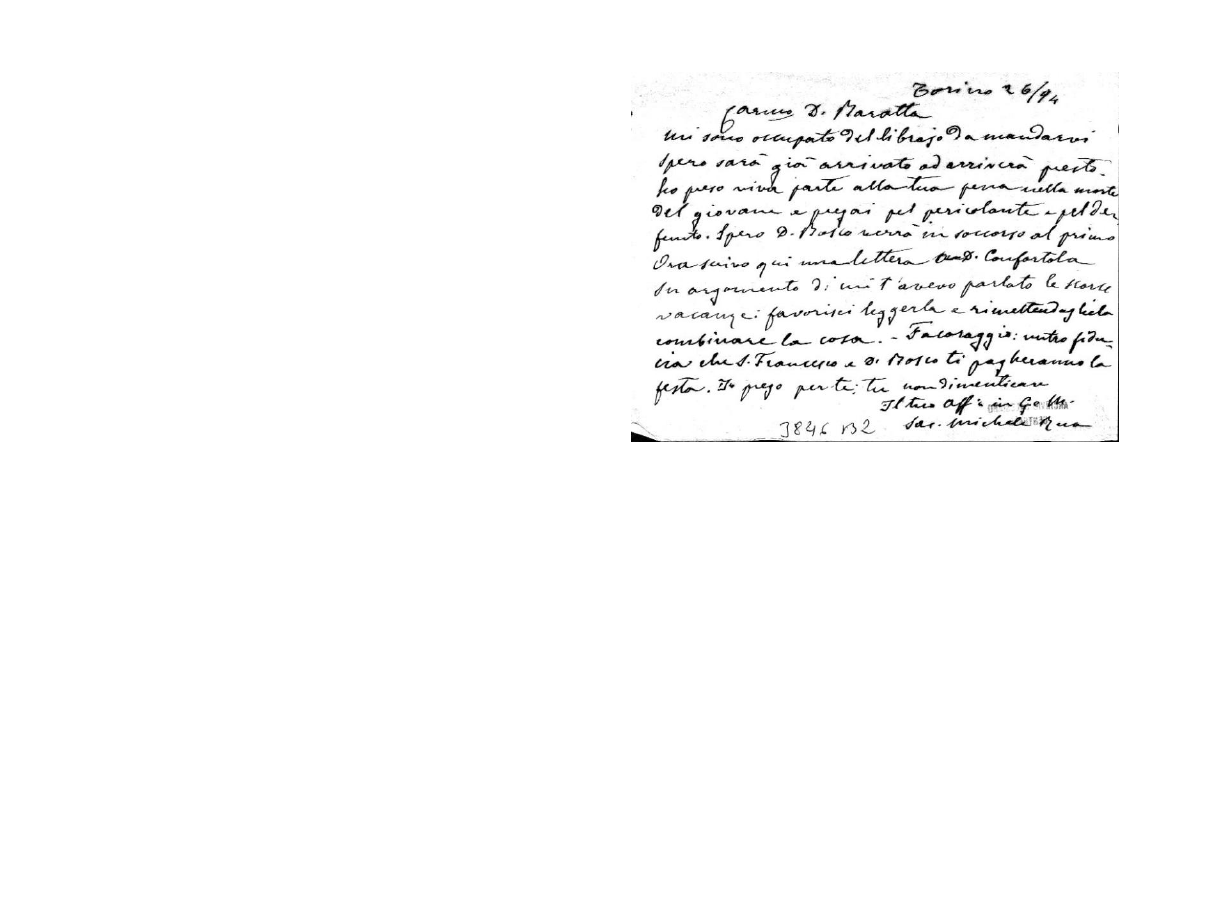 Torino 26/94
Carmo D. Baratta
Mi sono occupato del librajo da mandarvi
spero sarà già arrivato od arriverà presto.
Ho preso viva parte alla tua pena nella morte
del giovane e pregai pel pericolante e pel de
funto. Spero D. Bosco verrà in soccorso al primo
Ora scrivo qui una lettera D. Confortola
su argomento di cui t'avevo parlato le scorse
vacanze: favorisci leggerla e rimettendogliela
combinare la cosa. - Fa coraggio: nutro fidu-
cia che S. Francesco e D. Bosco ti pagheranno la
festa. Io prego per te; tu non dimenticare
Il tuo Aff. in G. e M.
Sac. Michele Rua
3846 B2